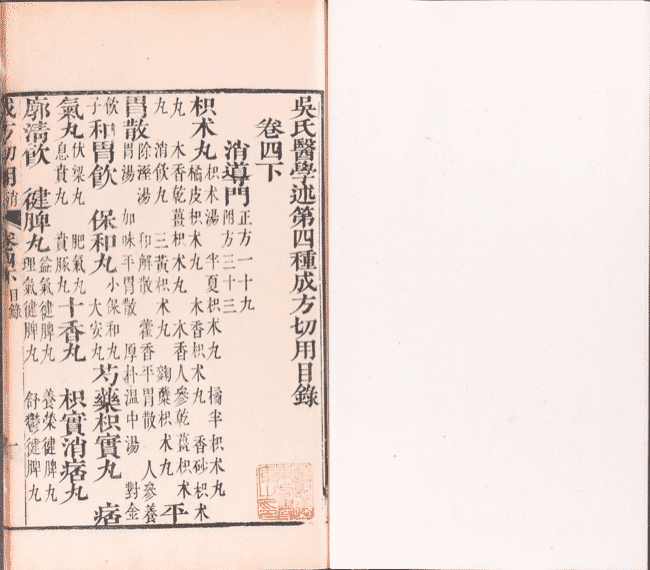 吳氏醫學述第四種成方切用目錄
卷四下
消導門 正方一十九 附方三十三
枳术丸 枳术湯 半夏枳术丸 橘半枳术丸 橘皮枳术丸 木香枳术丸 香砂枳术
丸 木香乾薑枳术丸 木香人參乾薑枳术 丸 消飲丸 三黃枳术丸 枳术丸 平
胃散 除溼湯 和解散 藿香平胃散 人參養 胃湯 加味平胃散 厚朴温中湯 對金
飲子 和胃飲 保和丸 小保和丸 大安丸 芍藥枳實丸 痞
氣丸 伏梁丸 肥氣丸 息賁丸 賁豚丸 十香丸 枳實消痞丸
廓清飲 徤脾丸 益氣徤脾丸 養榮徤脾丸 理氣徤脾丸 舒鬱徤脾丸
成方切用 消 卷四下 目錄 一